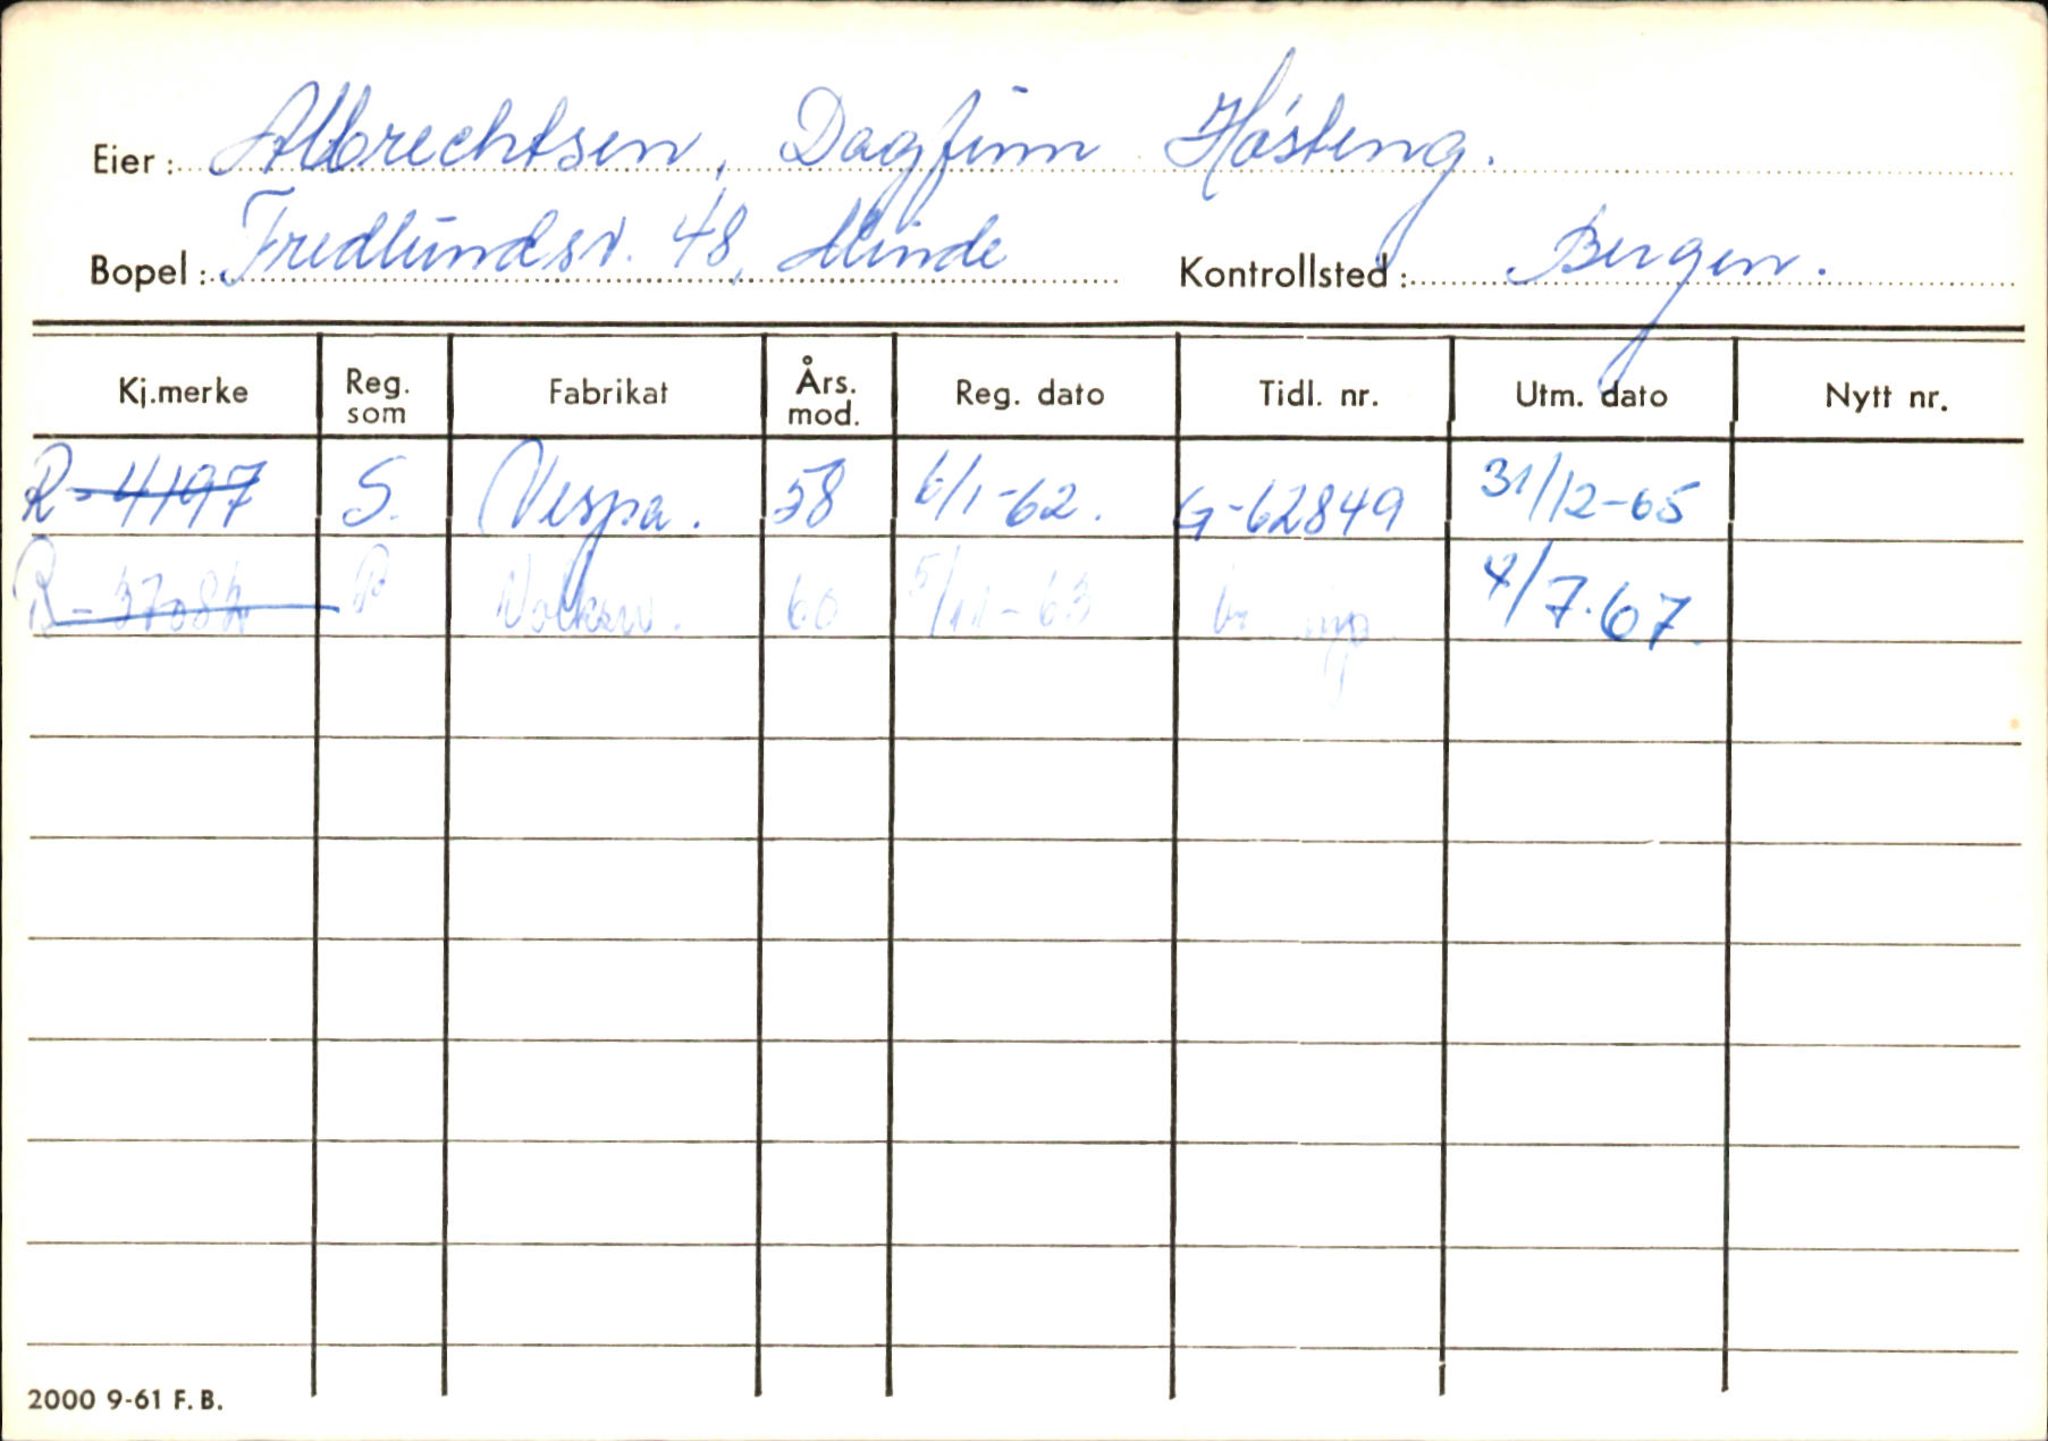 Eier: Albrechtsen, Dagfinn Høsteng.
Bopel: Fredlundsv. 48, Minde Kontrollsted: Bergen.
Kj.merke Reg. som Fabrikat Års. mod. Reg. dato Tidl. nr. Utm. dato Nytt nr.
R-4197 S. Vespa. 58 6/1-62. G-62849 31/12-65
R-37082 P Volksw. 60 5/11-63 4/7.67.
2000 9-61 F.B.